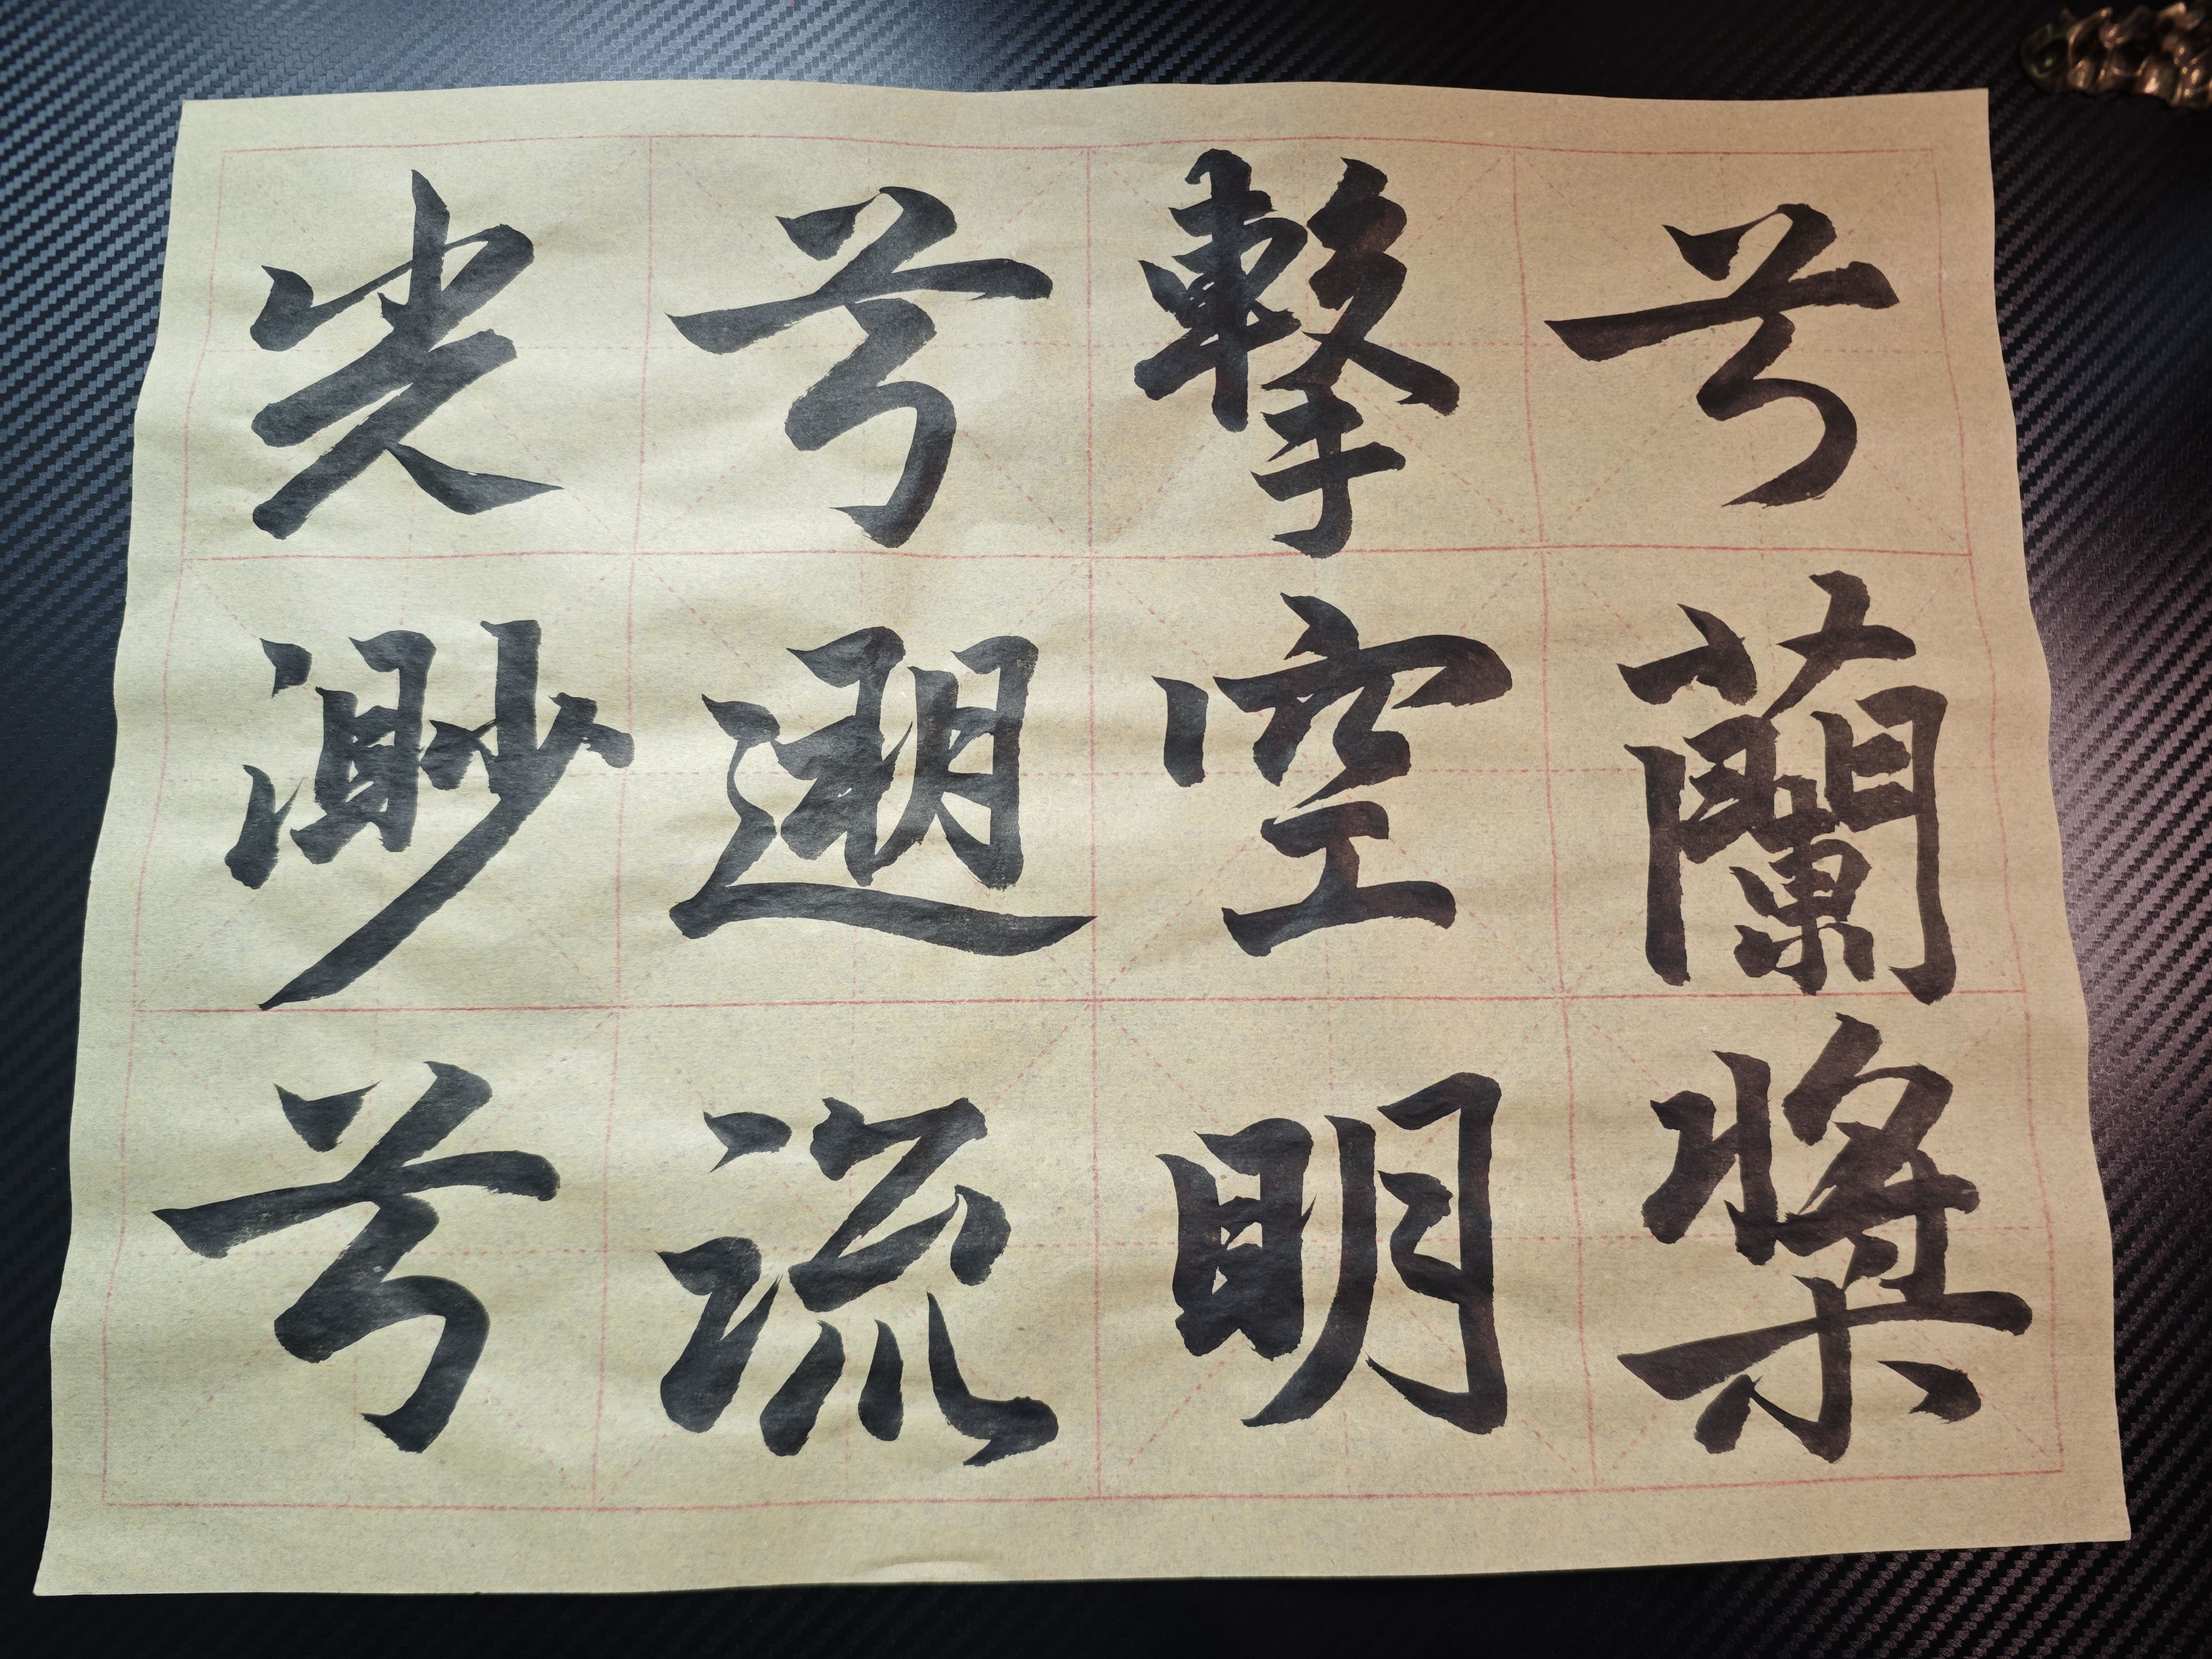 兮蘭槳
擊空明
兮遡流
光渺兮